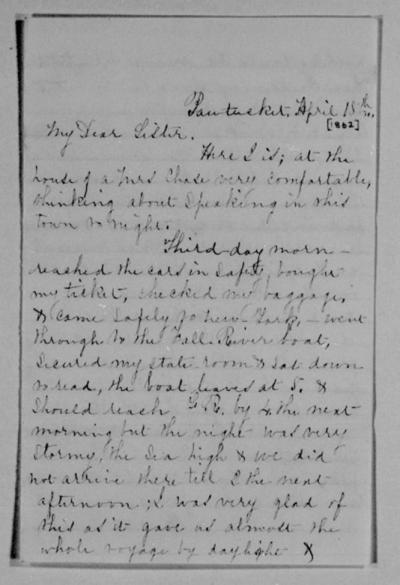 Pawtucket, April 18th
[1862]
My Dear Sister.
Here I is; at the
house of a Mrs Chase very comfortable,
thinking about Speaking in this
town to night.
Third day morn –
reached the cars in Safety, bought
my ticket, checked my baggage,
& came Safely to New York, – went
through to the Fall River boat,
Secured my state room & Sat down
to read, the boat leaves at 5. &
Should reach F R. by 4 the next
morning but the night was very
Stormy, the Sea high & we did
not arrive there till 2 the next
afternoon; I was very glad of
this as it gave us almost the
whole voyage by daylight &